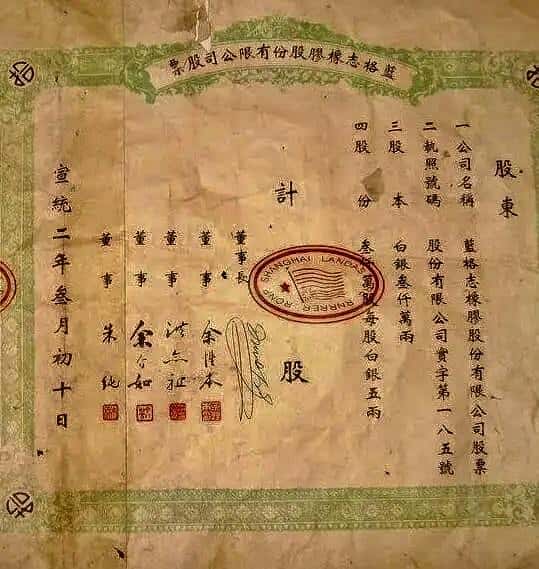 藍格志橡膠股份有限公司股票
股東
一公司名稱 藍格志橡膠股份有限公司股票
二執照號碼 股份有限公司實字第一八五號
三股本 白銀叁仟萬兩
四股份 叁仟萬股每股白銀五兩
計 股
SHANGHAI LANDAS
RNRRER RONS
董事長
董事 余 本
董事 洪
董事 余 如
董事 朱純
宣統二年叁月初十日